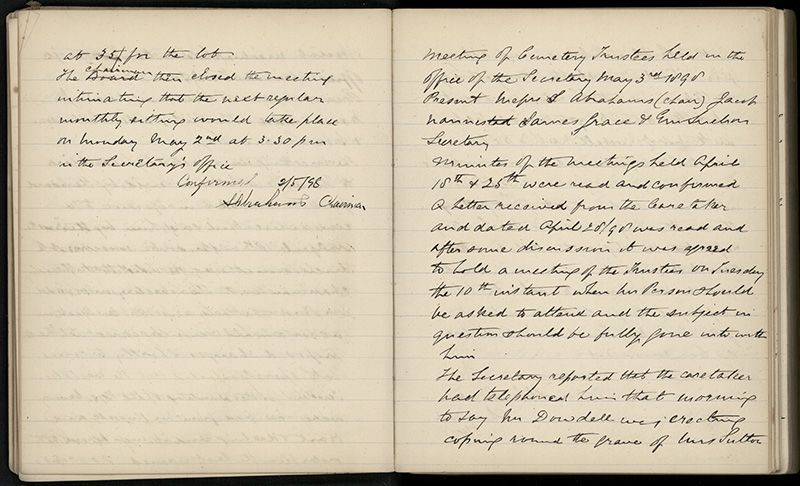 at 35/ for the lot
The Chairman then closed the meeting
intimating that the next regular
monthly sitting would take place
on Monday May 2nd at 3:30 pm
in the Secretary's office
Confirmed 2/5/98
S Abrahams Chairman
Meeting of Cemetery Trustees held in the
Office of the Secretary May 3rd 1898
Present Messrs S Abrahams (chair) Jacob
James Grace &
Secretary
Minutes of the meetings held April
18th & 25th were read and confirmed
A letter received from the Caretaker
and dated April 28/98 was read and
after some discussion it was agreed
to hold a meeting of the Trustees on Tuesday
the 10th instant when Mr Person should
be asked to attend and the subject in
question should be fully gone into with
him
The Secretary reported that the caretaker
had telephoned him that morning
to say Mr Dowdell was erecting
coping round the grave of Mrs Sutton